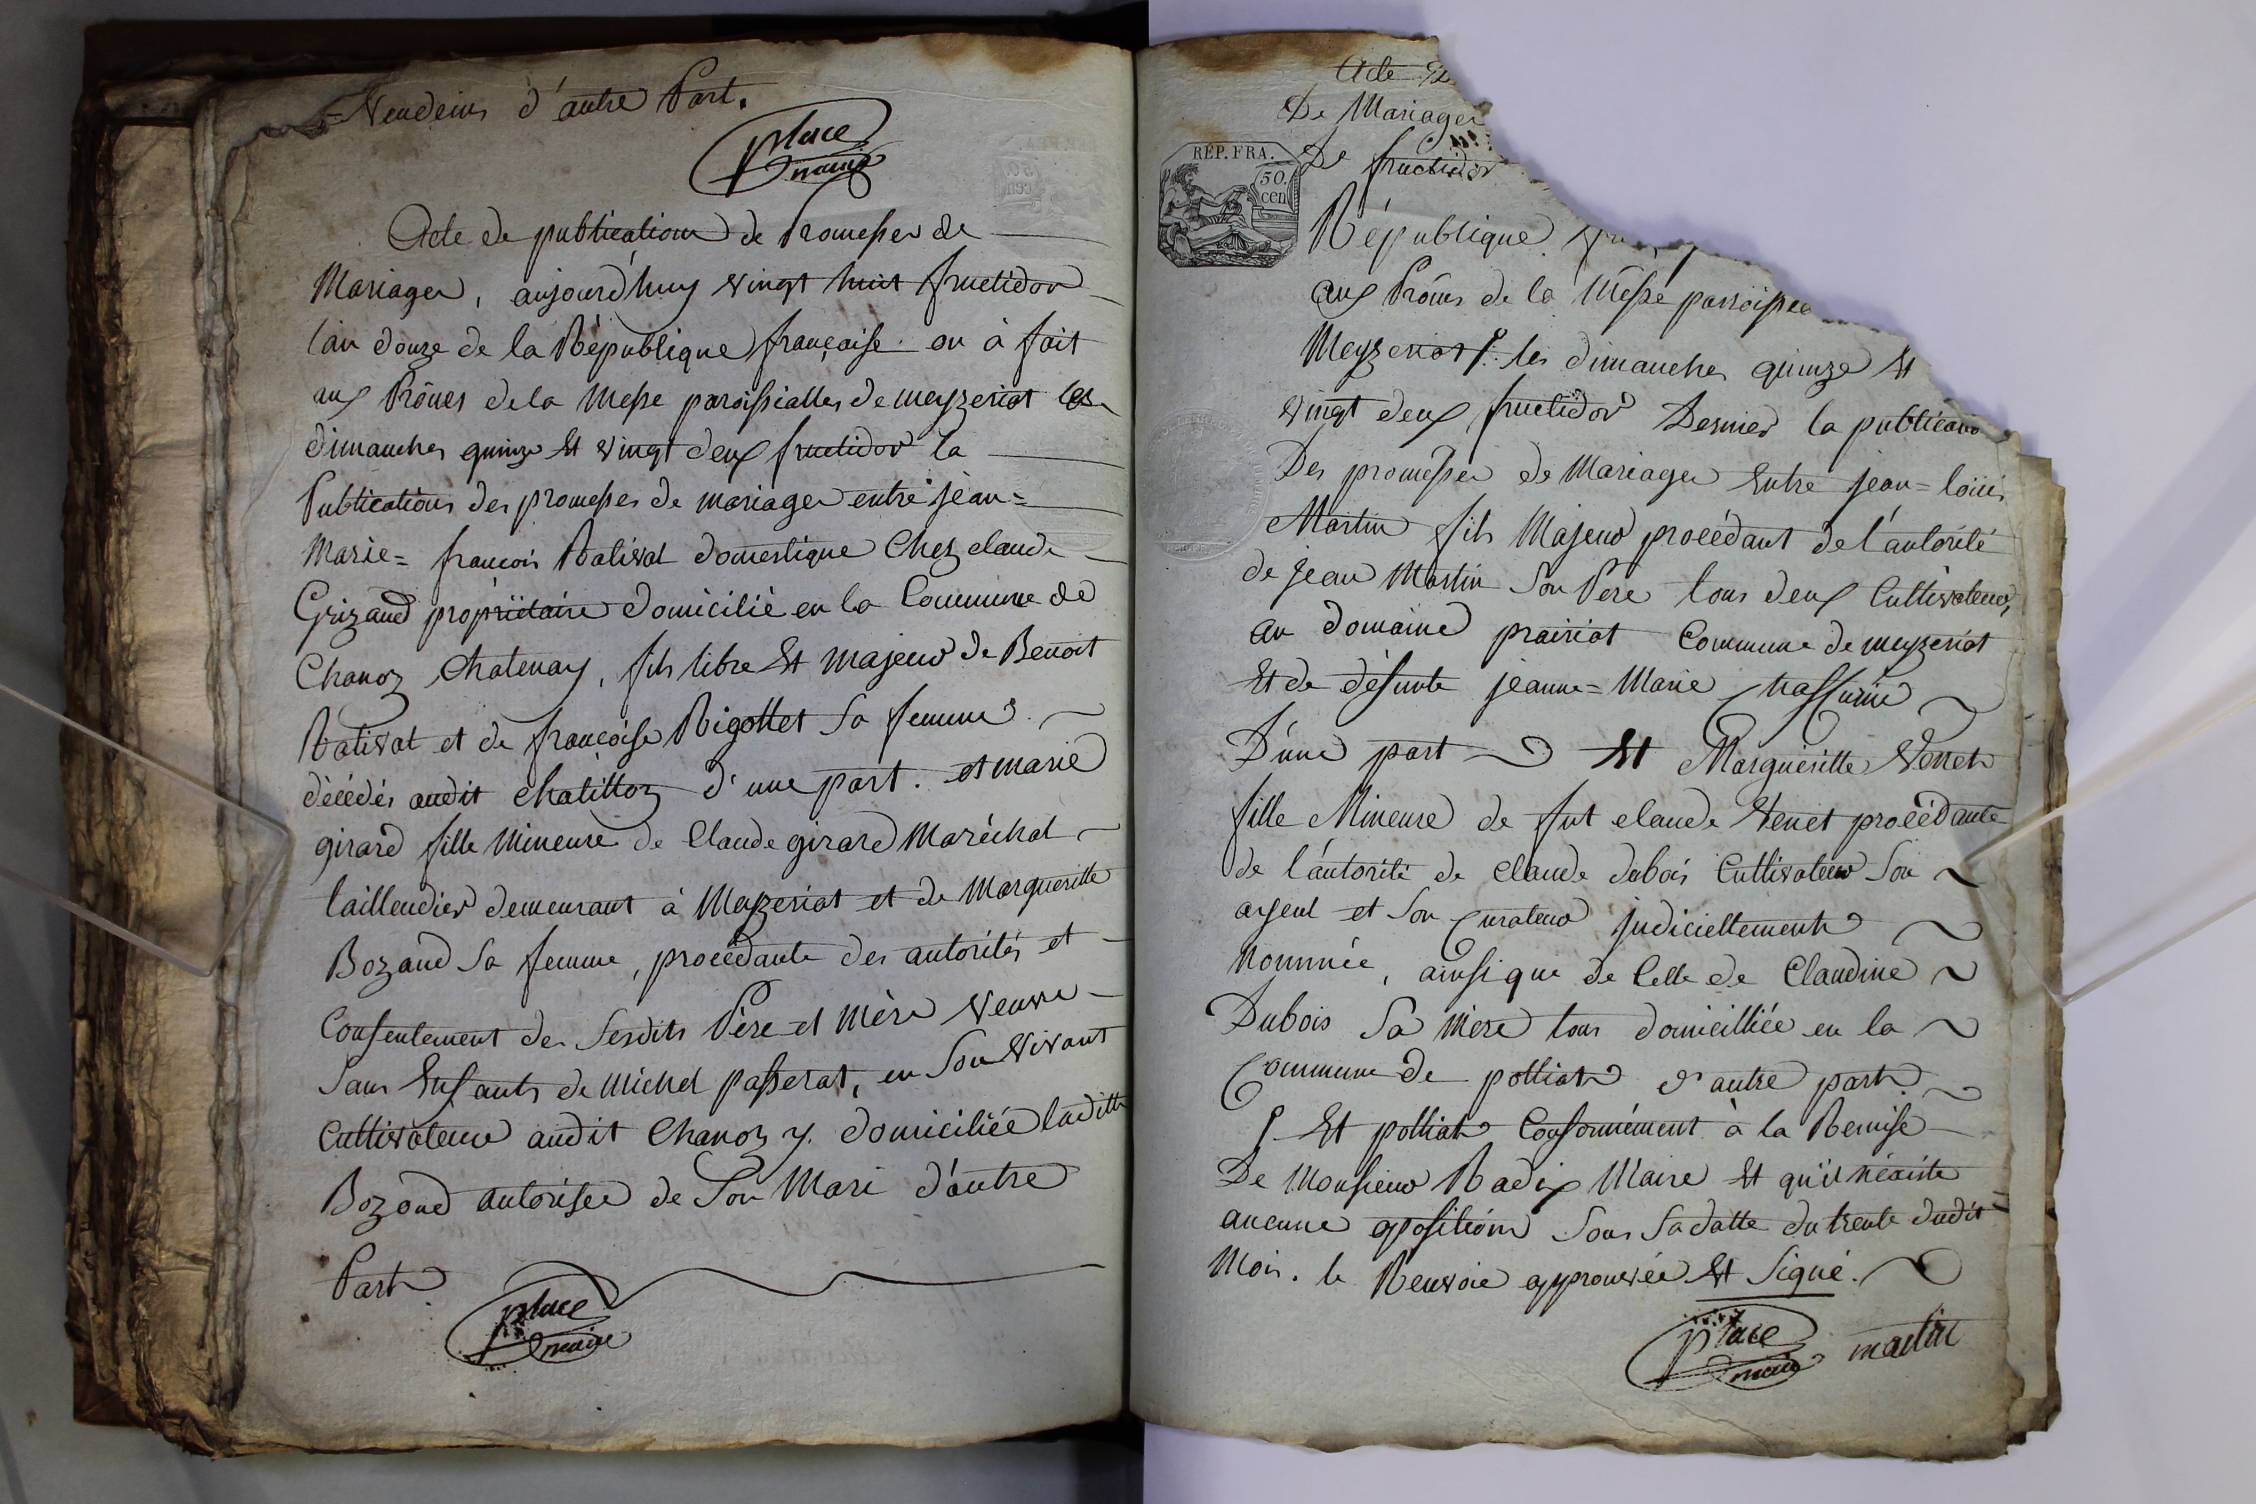 Vendeins d'autre Part.
place
maire
Acte de publication de Promesses de
Mariages, aujourd'huy vingt huit fructidor
l'an douze de la République française. on à fait
aux Prônes de la Messe paroissialles de meyzeriat les
dimanches quinze Et vingt deux fructidor la
Publications des promesses de mariages entre jean=
Marie= françois Rativat domestique Chez claude
Grizaud propriétaire domicilié en la Commune de
Chanoz Chatenay, fils libre Et majeur de Benoit
Rativat et de françoise Rigottet Sa femme
décédés audit Chatillon d'une part. et marie
girard fille Mineure de Claude girard Maréchal
taillendier demeurant à Meyzeriat et de Margueritte
Bozaud Sa femme, procédante des autorités et
Consentement de Sesdits Père et Mère Veuve
Sans Enfants de Michel passerat, en Son Vivant
Cultivateur audit Chanoz y. domiciliée laditte
Bozaud autorisée de Son Mari d'autre
Part
place
maire
Acte
De Mariages
De fructidor
REP. FRA.
50.
cen
République
aux Prônes de la Messe paroissea
Meyzeriat les dimanches quinze Et
vingt deux fructidor Dernier la publicatio
Des promesses de Mariages Entre jean= loüis
Martin fils Majeur procédant de l'autorité
de jean Martin Son Père tous deux Cultivateurs,
au domaine prairiat Commune de meyzeriat
Et de défunte jeanne= Marie
D'une part Et Margueritte Venet
fille Mineure de fut claude Venet procédante
de l'autorité de Claude dubois Cultivateur Son
ayeul et Son Curateur judiciellement
Nommée, ainsi que de Celle de Claudine
Dubois Sa Mère tous domicilliée en la
Commune de polliat d'autre part
Et polliat Conformément à la Remise
De Monsieur Radix Maire Et qu'il néxiste
aucune opposition Sous Sa datte du trente dudit
Mois. le Renvoie approuvée Et Signé.
place
maire
martin